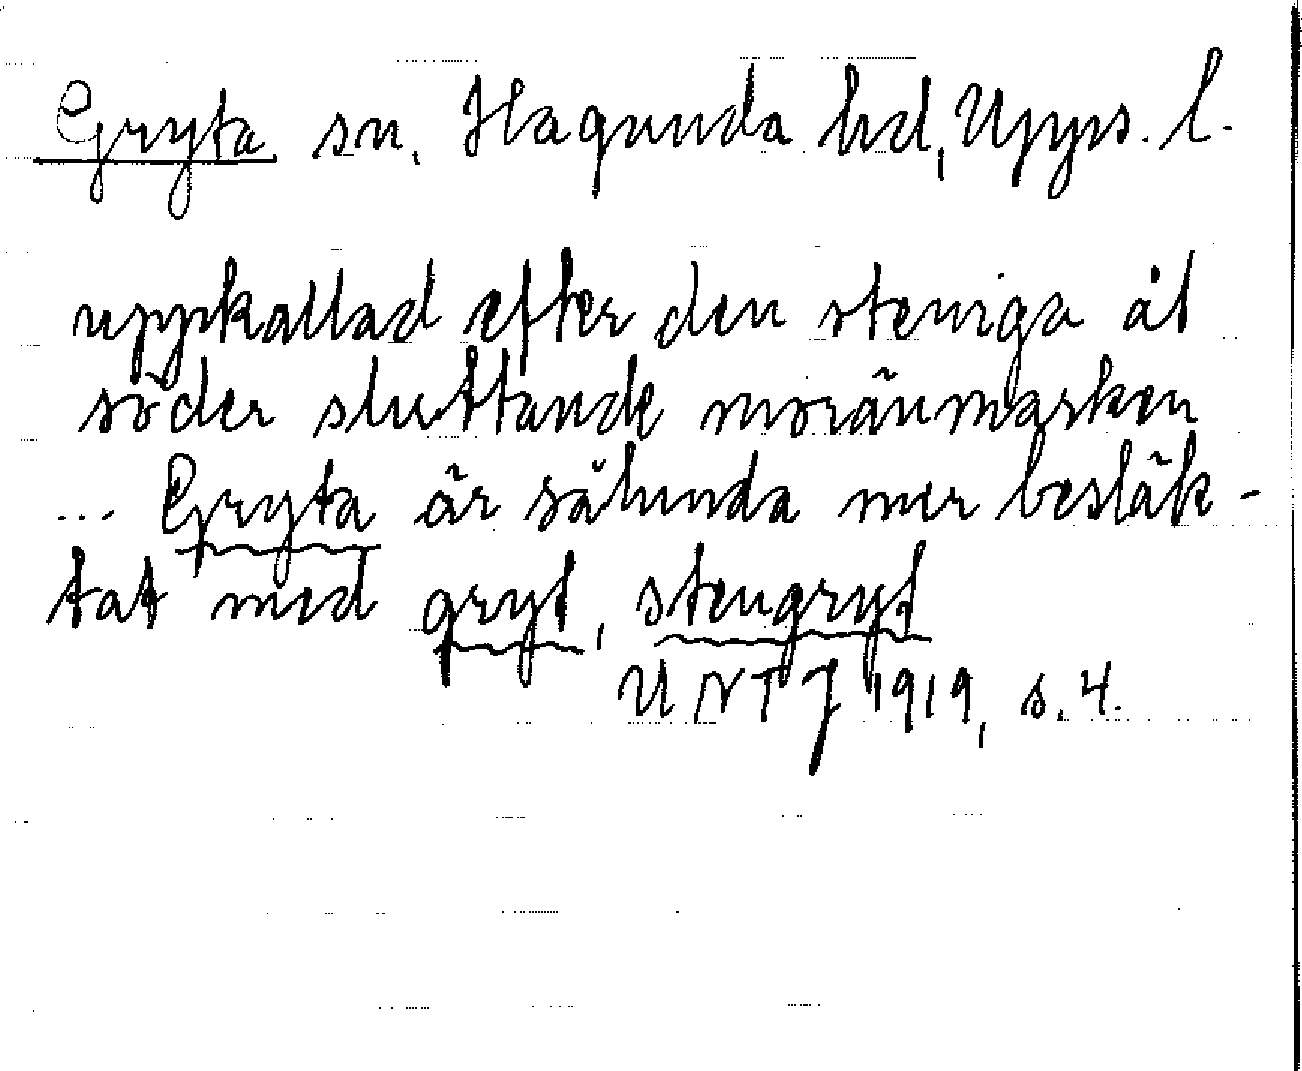 Gryta sn, Hagunda hd, Upps. l.
uppkallad efter den steniga åt
söder sluttande moränmarken
... Gryta är sålunda mer besläk-
tat med gryt, stengryt
UNT J 1919, s. 4.